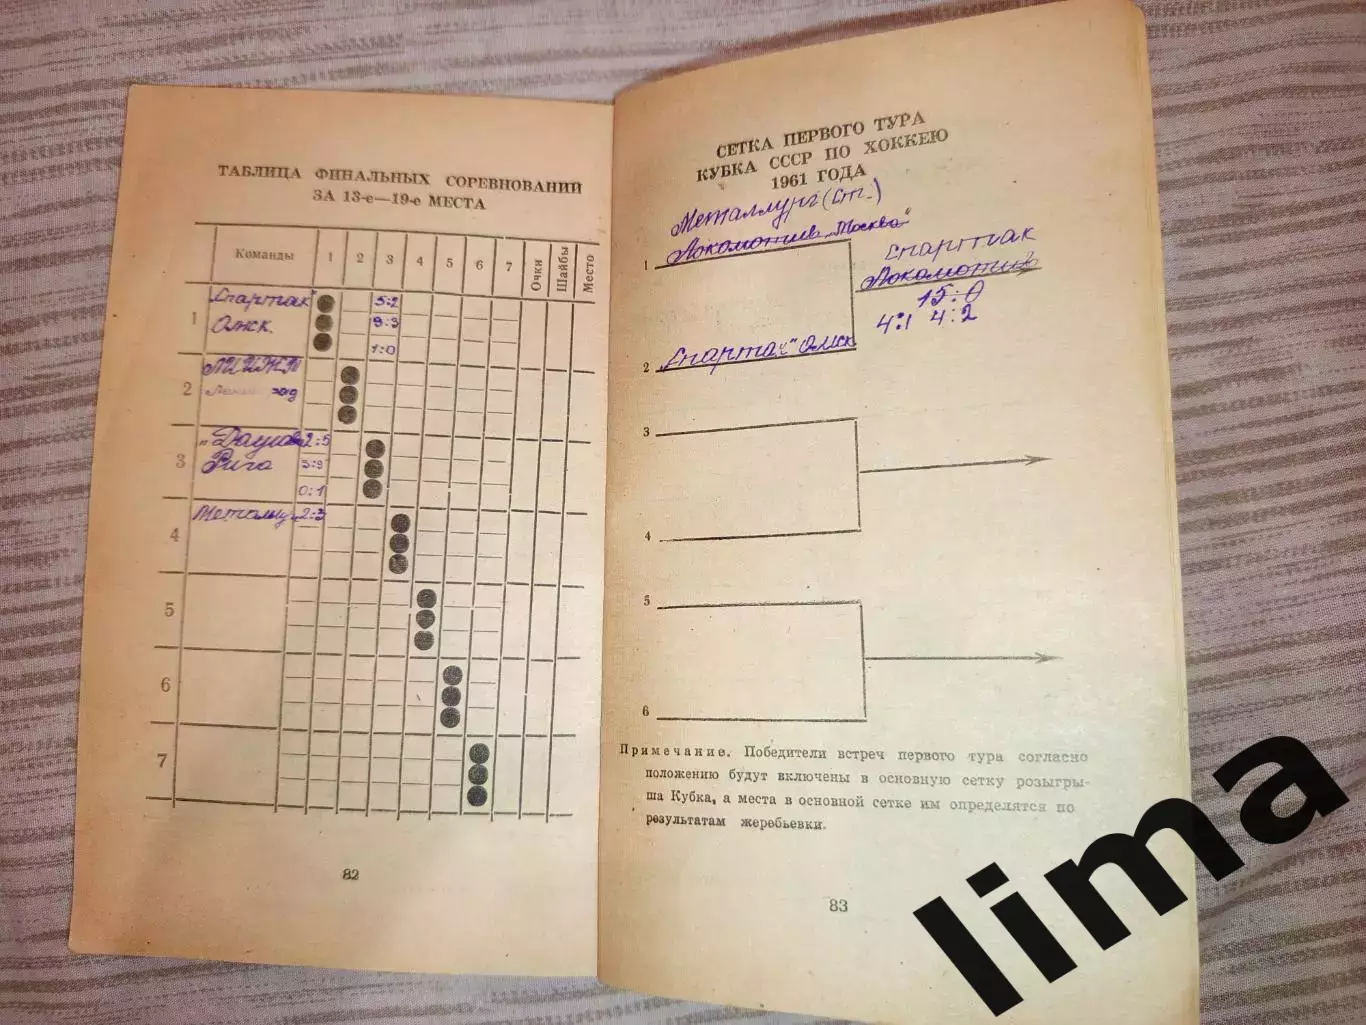 ТАБЛИЦА ФИНАЛЬНЫХ СОРЕВНОВАНИЙ
ЗА 13-е—19-е МЕСТА
Команды 1 2 3 4 5 6 7 Очки Шайбы Место
1 „Спартак" 5:2
Омск. 9:3
1:0
2
3 2:5
Рига 3:9
0:1
4 Металлу 2:3
5
6
7
82
СЕТКА ПЕРВОГО ТУРА
КУБКА СССР ПО ХОККЕЮ
1961 ГОДА
Металлург (Ст.)
1 Локомотив „Москва"
Спартак
Локомотив
15:0
4:1 4:2
2 „Спартак" Омск
3
4
5
6
Примечание. Победители встреч первого тура согласно
положению будут включены в основную сетку розыгры-
ша Кубка, а места в основной сетке им определятся по
результатам жеребьевки.
83
lima